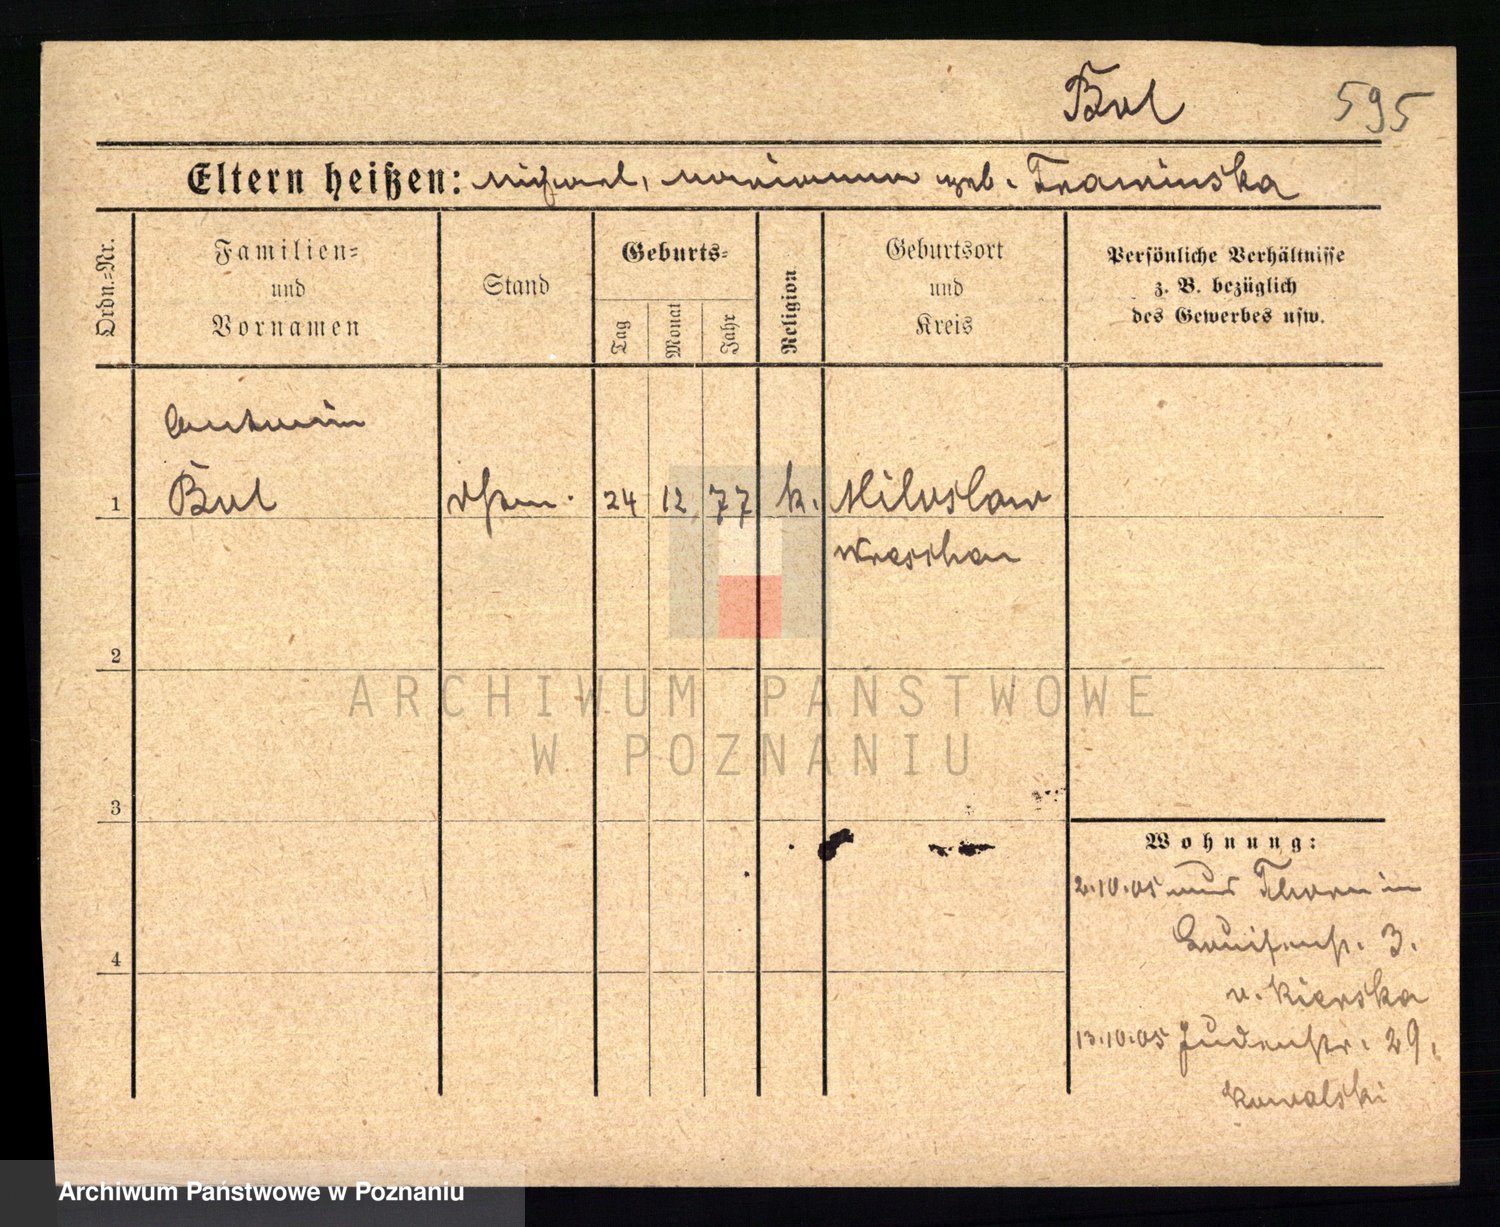 Bul
595
Eltern heißen: Michael, Marianna geb. Frawinska
Ordn.=Nr.
Familien=
und
Vornamen
Stand
Geburts=
Tag
Monat
Jahr
Religion
Geburtsort
und
Kreis
Persönliche Verhältnisse
z. B. bezüglich
des Gewerbes usw.
1
Bul
24 12 77 k. Miloslaw
Wreschen
2
ARCHIWUM PAŃSTWOWE
W POZNANIU
3
Wohnung:
2.10.05 aus Thorn in
Louisenstr. 3.
v. Kierska
4
13.10.05 Judenstr. 29.
Kowalski
Archiwum Państwowe w Poznaniu